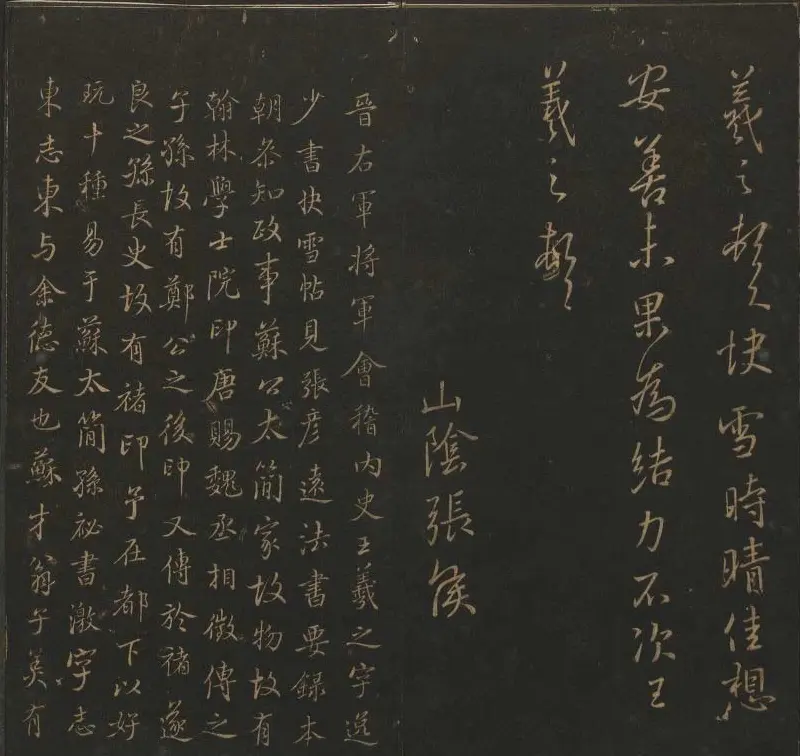 羲之頓首快雪時晴佳想
安善未果為結力不次王
羲之頓首
山陰張侯
晉右軍將軍會稽內史王羲之字逸
少書快雪帖見張彥遠法書要錄本
朝參知政事蘇公太簡家故物故有
翰林學士院印唐賜魏丞相徵傳之
子孫故有鄭公之後印又傳於褚遂
良之孫長史故有褚印予在都下以好
玩十種易于蘇太簡孫祕書激字志
東志東与余德友也蘇才翁子美有